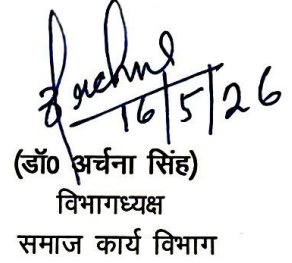 Archna
16/5/26
(डॉ0 अर्चना सिंह)
विभागध्यक्ष
समाज कार्य विभाग